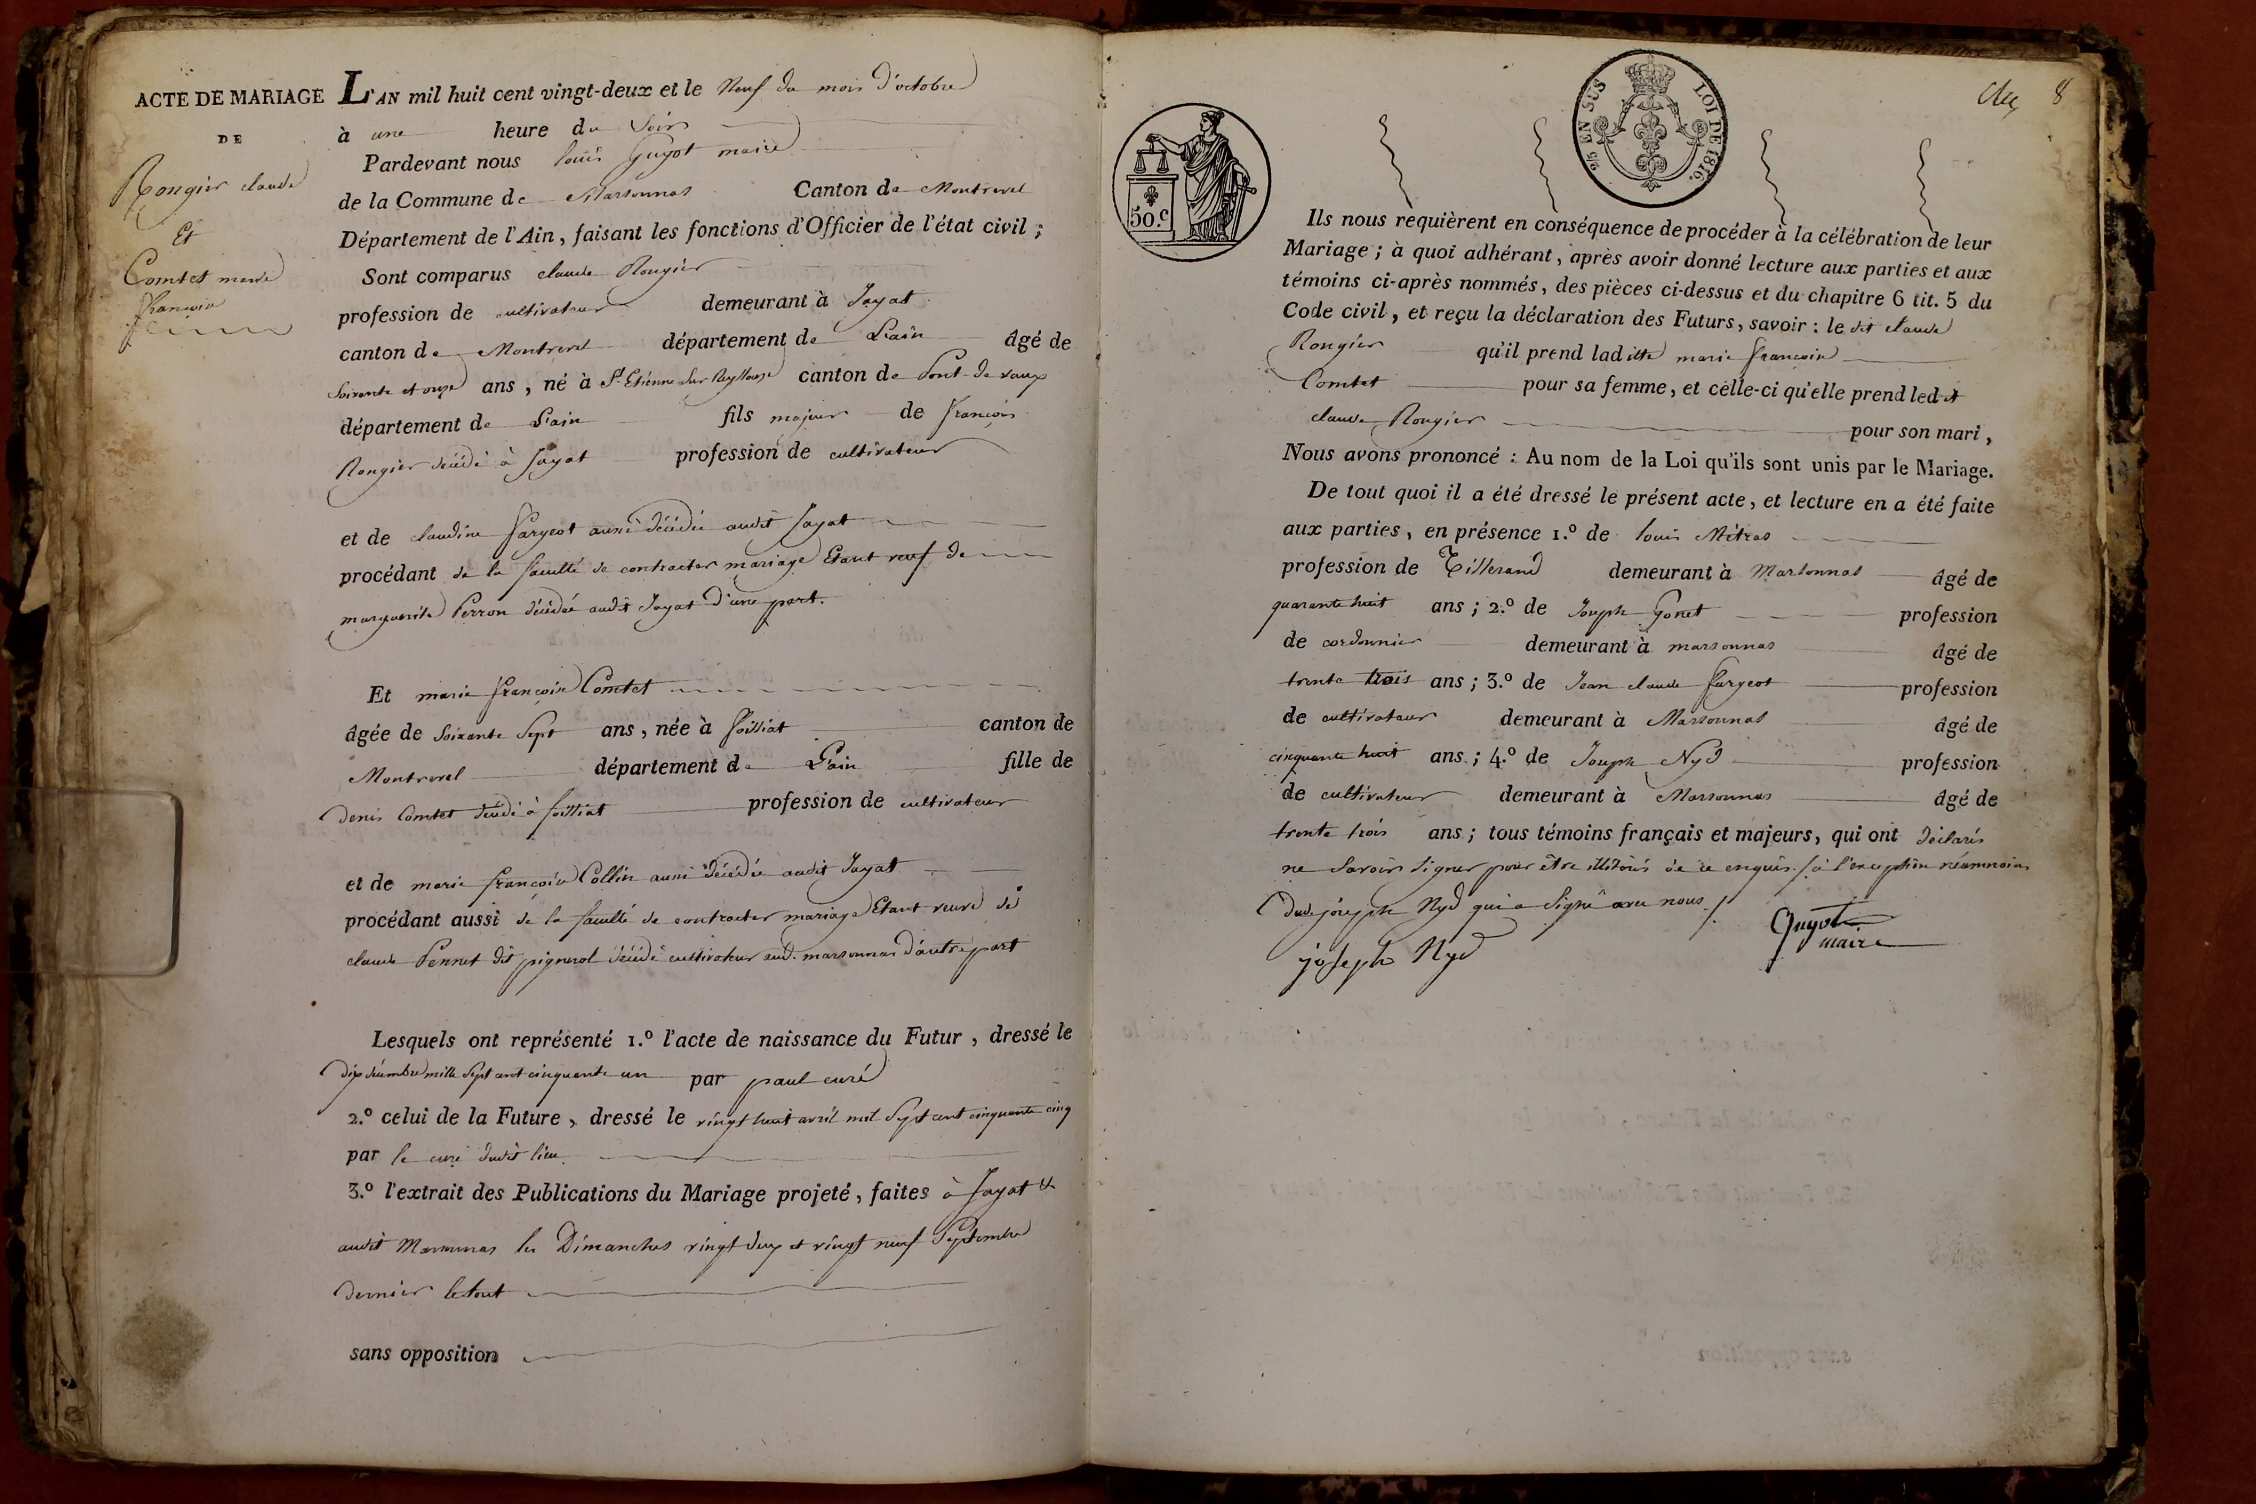 ACTE DE MARIAGE
DE
Rongier claude
Et
Comtet marie
françoise
L'AN mil huit cent vingt-deux et le Neuf du mois d'octobre
à une heure du Soir
Pardevant nous louis Guyot maire
de la Commune de Marsonnas Canton de Montrevel
Département de l'Ain, faisant les fonctions d'Officier de l'état civil ;
Sont comparus claude Rongier
profession de cultivateur demeurant à Jayat
canton de Montrevel département de L'ain âgé de
Soixante et onze ans, né à St Etienne Sur Reyssouze canton de Pont-de vaux
département de L'ain fils majeur de françois
Rongier décédé à Jayat profession de cultivateur
et de claudine fargeot aussi décédée audit Jayat
procédant de la faculté de contracter mariage Etant veuf de
marguerite Perron décédée audit Jayat d'une part.
Et marie françoise Comtet
âgée de Soixante Sept ans, née à foissiat canton de
Montrevel département de L'ain fille de
Denis Comtet décédé à foissiat profession de cultivateur
et de marie françoise Collin aussi décédée audit Jayat
procédant aussi de la faculté de contracter mariage Etant veuve de
claude Pennet dit pignerol décédé cultivateur aud. marsonnas d'autre part
Lesquels ont représenté 1.º l'acte de naissance du Futur, dressé le
dix décembre mille Sept cent cinquante un par paul curé
2.º celui de la Future, dressé le vingt huit avril mil Sept cent cinquante cinq
par le curé dudit lieu
3.º l'extrait des Publications du Mariage projeté, faites à Jayat et
audit Marsonnas les Dimanches vingt deux et vingt neuf Septembre
dernier le tout
sans opposition
50.c
25 EN SUS LOI DE 1816.
8
Ils nous requièrent en conséquence de procéder à la célébration de leur
Mariage ; à quoi adhérant, après avoir donné lecture aux parties et aux
témoins ci-après nommés, des pièces ci-dessus et du chapitre 6 tit. 5 du
Code civil, et reçu la déclaration des Futurs, savoir : le dit claude
Rongier qu'il prend lad itte marie françoise
Comtet pour sa femme, et celle-ci qu'elle prend led it
claude Rongier pour son mari,
Nous avons prononcé : Au nom de la Loi qu'ils sont unis par le Mariage.
De tout quoi il a été dressé le présent acte, et lecture en a été faite
aux parties, en présence 1.º de louis Mitras
profession de Tisserand demeurant à Marsonnas âgé de
quarante huit ans ; 2.º de Joseph Gonet profession
de cordonnier demeurant à marsonnas âgé de
trente trois ans ; 3.º de Jean claude fargeot profession
de cultivateur demeurant à Marsonnas âgé de
cinquante huit ans ; 4.º de Joseph Nyd profession
de cultivateur demeurant à Marsonnas âgé de
trente trois ans ; tous témoins français et majeurs, qui ont déclarés
ne Savoir Signer pour être illitérés de ce enquis / à l'exception néanmoins
dud. joseph Nyd qui a Signé avec nous /
joseph Nyd
Guyot
maire